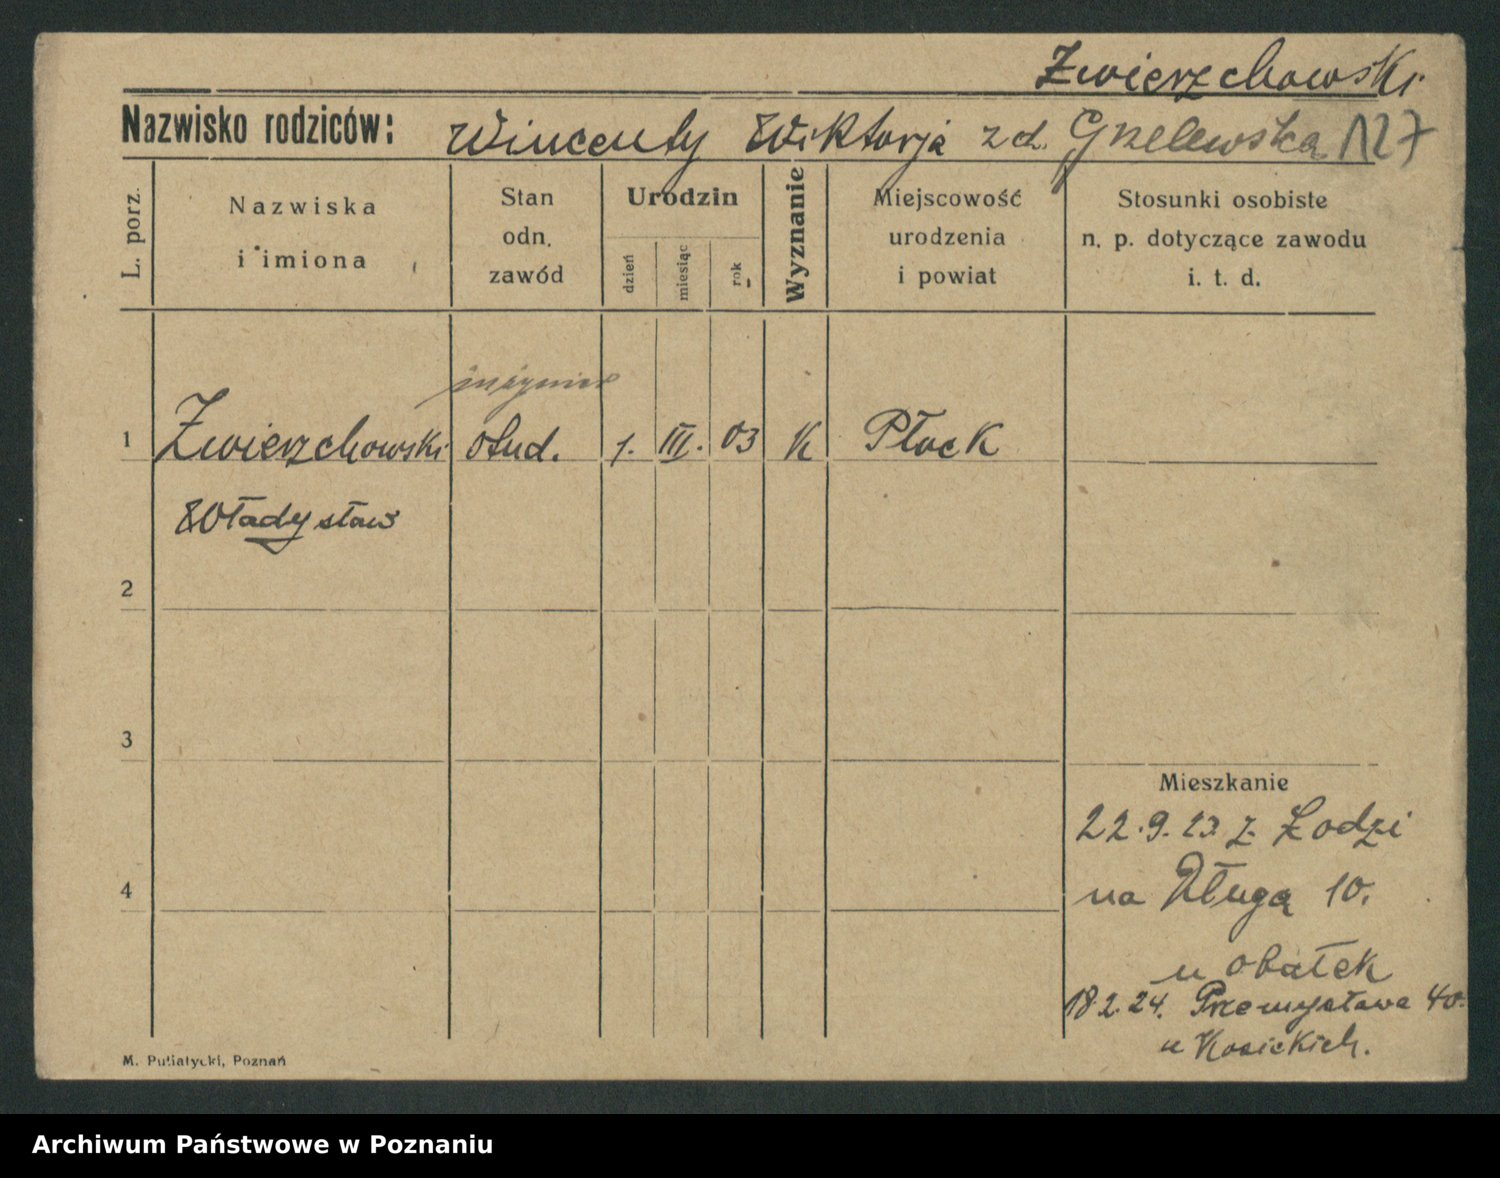 Zwierzchowski
Nazwisko rodziców: Wincenty Wiktorja z d. Grelewska 127
L. porz.
Nazwiska
i imiona
Stan
odn.
zawód
Urodzin
dzień
miesiąc
rok
Wyznanie
Miejscowość
urodzenia
i powiat
Stosunki osobiste
n. p. dotyczące zawodu
i. t. d.
inżynier
1 Zwierzchowski stud. 1. III. 03 K Płock
Władysław
2
3
4
Mieszkanie
22.9.23. z Łodzi
na Długą 10.
u Obałek
18.2.24. Przemysława 40.
u Kosickich.
M. Putiatycki, Poznań
Archiwum Państwowe w Poznaniu